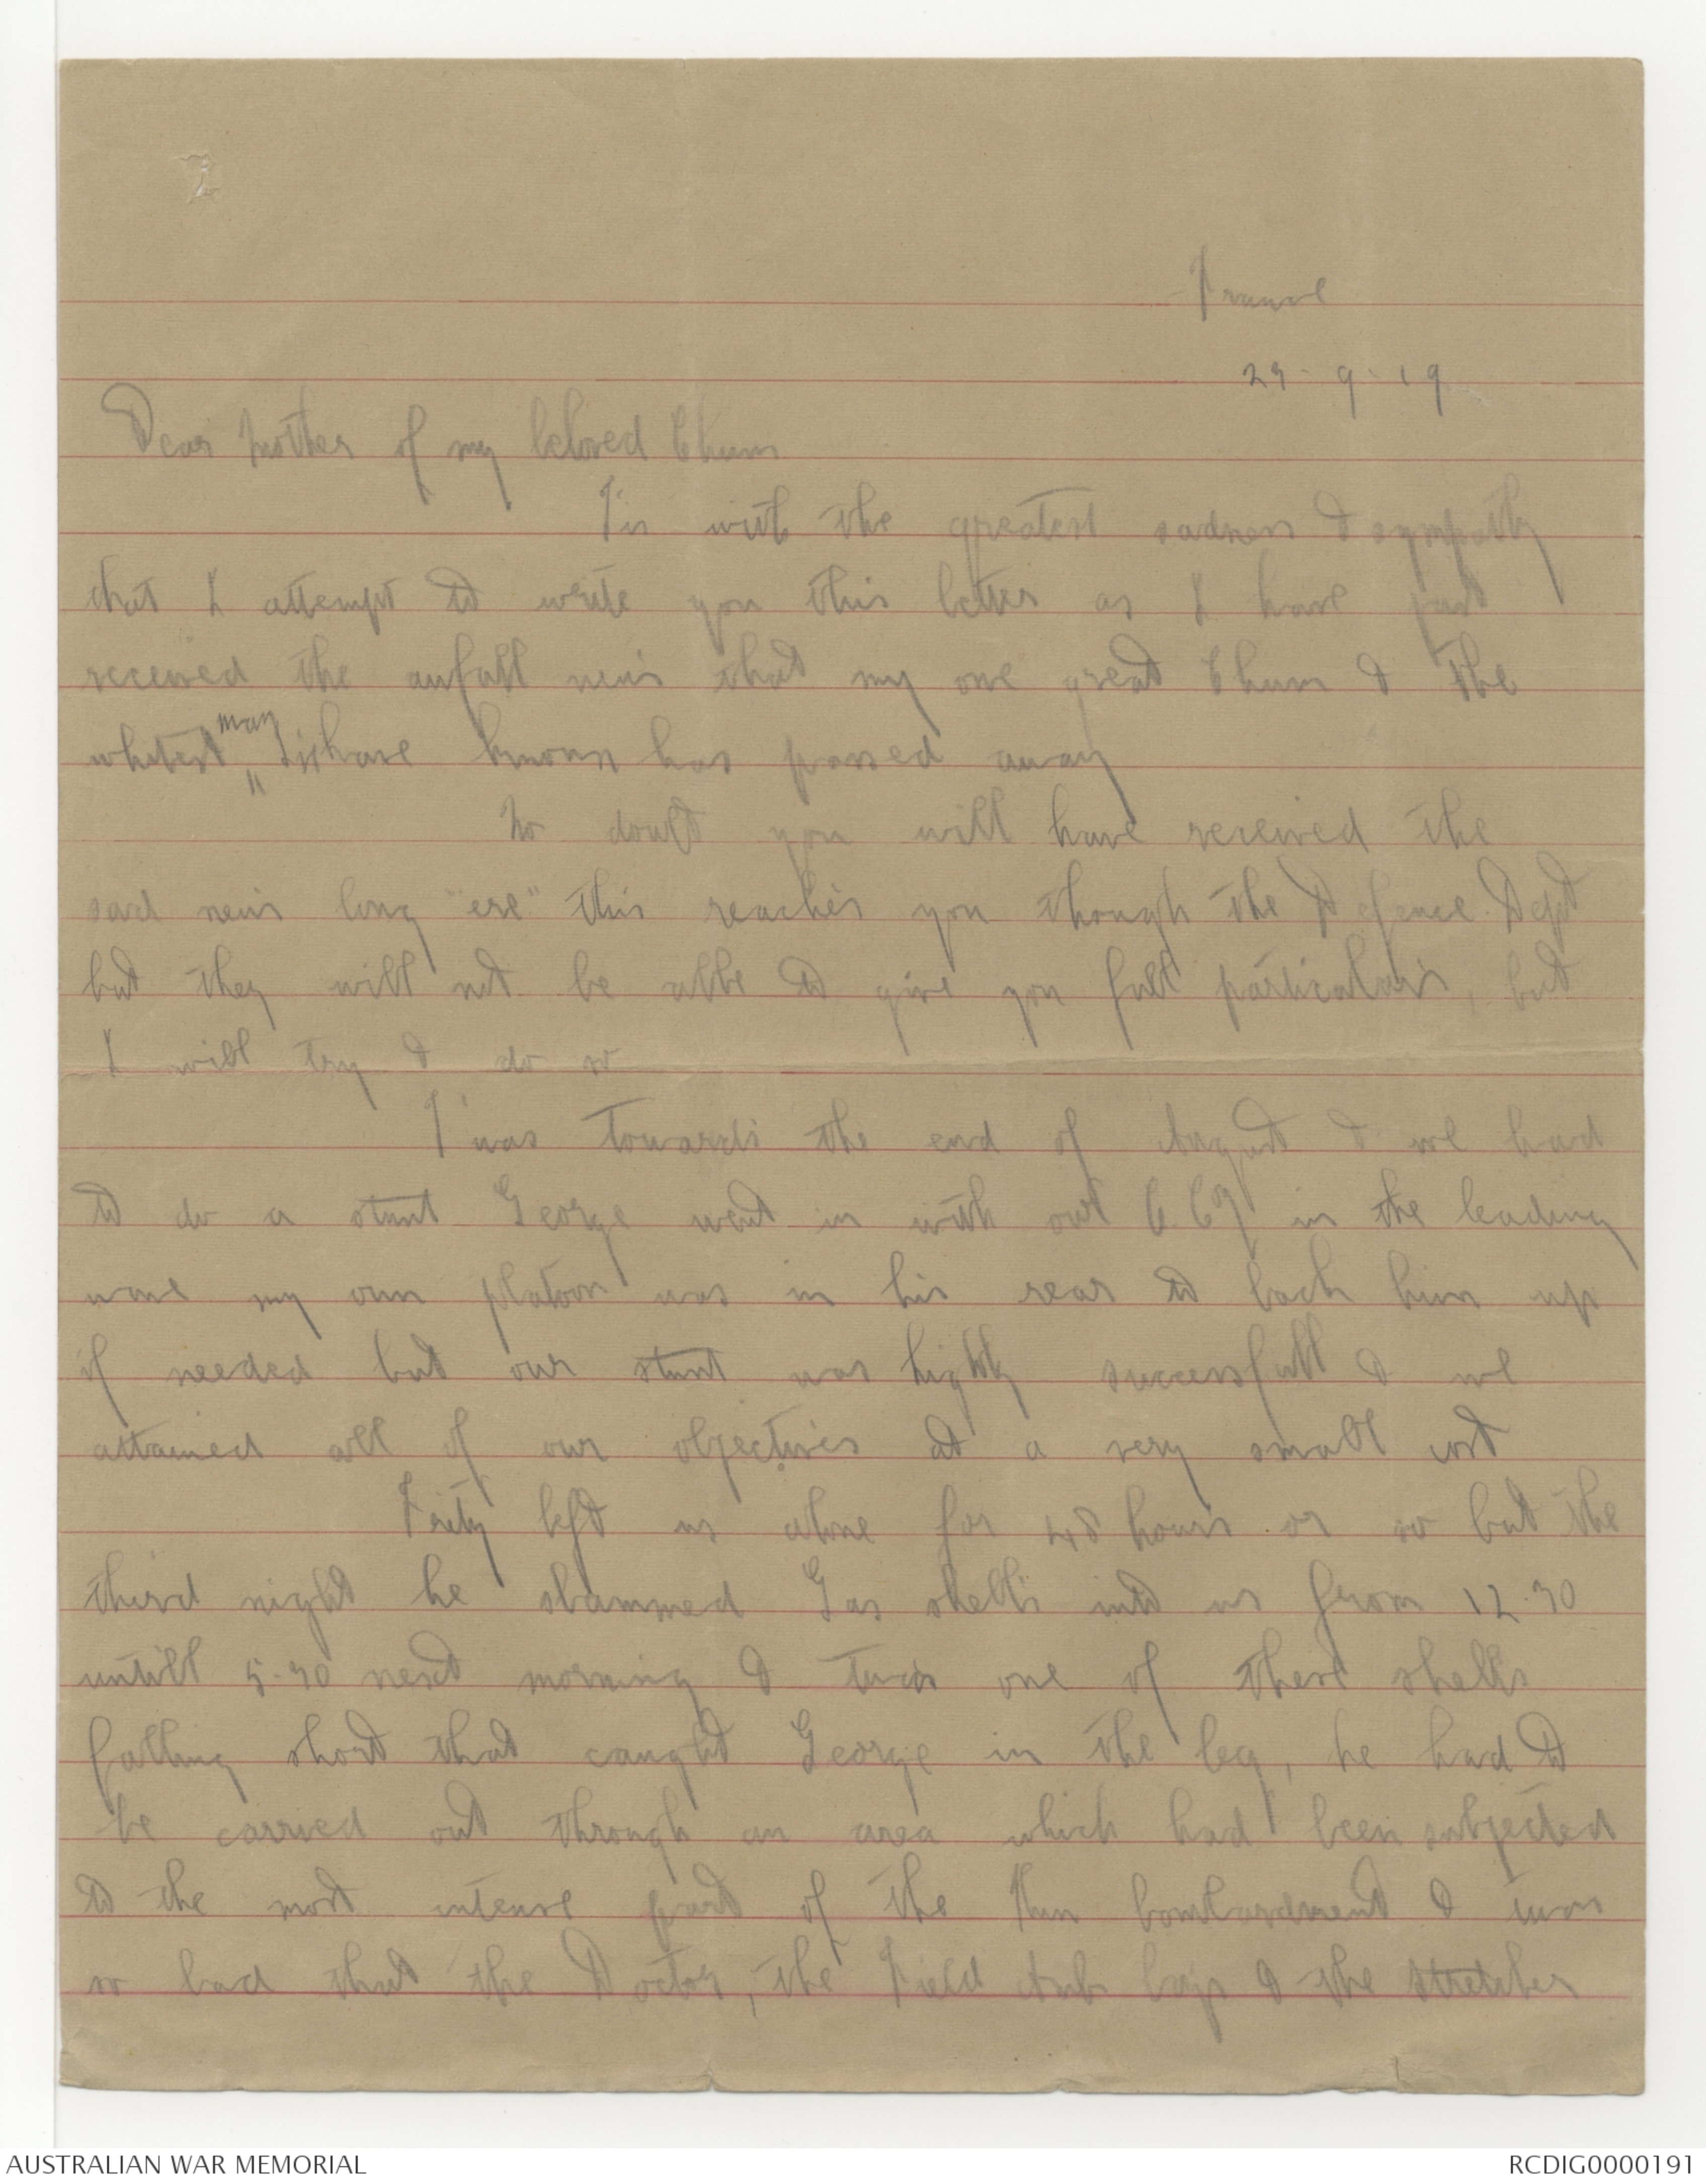 France
29-9-19
Dear Mother of my beloved Chum
Tis with the greatest sadness & sympathy
that I attempt to write you this letter as I have just
received the awfull news that my one great Chum & the
whitest man I have known has passed away
No doubt you will have received the
sad news long "ere" this reaches you though the Defence Dept
but they will not be able to give you full particulars, but
I will try & do so
T'was towards the end of August & we had
to do a stunt George went in with out C. Coy in the leading
wave my own platoon was in his rear to back him up
if needed but our stunt was highly successfull & we
attained all of our objectives at a very small cost
Fritz left us alone for 48 hours or so but the
third night he slammed Gas shells into us from 12.30
untill 5-30 next morning & twas one of these shells
falling short that caught George in the leg, he had to
be carried out through an area which had been subjected
to the most intense part of the Hun bombardment & twas
so bad that the Doctor, the Field Amb Boys & the stretcher
AUSTRALIAN WAR MEMORIAL
RCDIG0000191